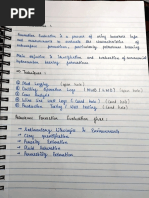 Formation Evaluation is a process of using borehole logs
measurements to evaluate the characteristics of
subsurface formations, particularly petroleum bearing
Main objective is Identification and evaluation of commercial
hydrocarbon bearing formations.
Techniques :
Mud Logging (open hole)
Cutting Formation Logs (MWD) (LWD) (open hole)
Core Analysis
Wire Line Well Logs (open hole) (cased hole)
Productive Testing / Well Testing (cased hole)
Petroleum Formation Evaluation gives :
→ Sedimentary Lithologies & Environments
→ Clay Quantification
→ Porosity Estimation
→ Fluid Saturation
→ Permeability Estimation